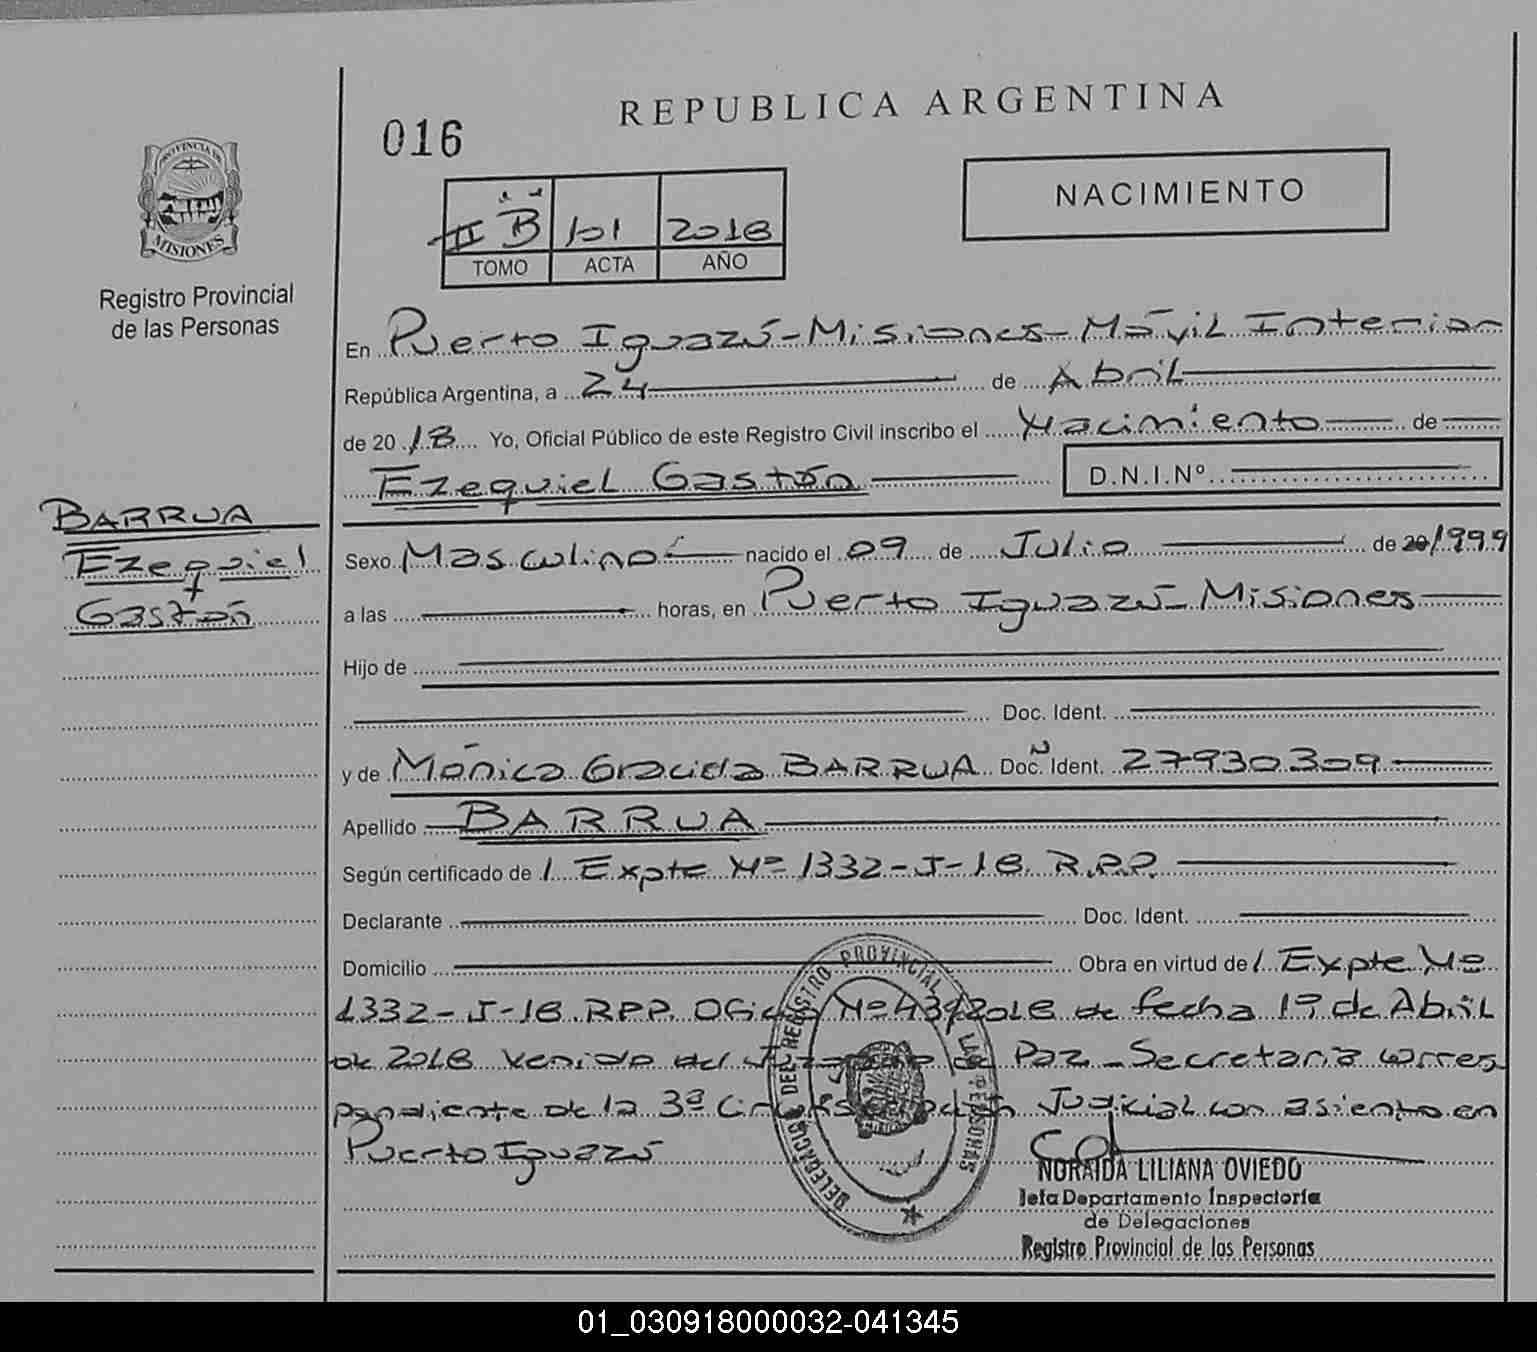 REPUBLICA ARGENTINA
016
NACIMIENTO
PROVINCIA DE
MISIONES
Registro Provincial
de las Personas
II "B" 101 2018
TOMO ACTA AÑO
En Puerto Iguazú - Misiones - Móvil Interior
República Argentina, a 24 de Abril
de 2018 Yo, Oficial Público de este Registro Civil inscribo el Nacimiento de
Ezequiel Gastón D.N.I.Nº
BARRUA
Ezequiel
Gastón
Sexo Masculino nacido el 09 de Julio de 20 1999
a las horas, en Puerto Iguazú - Misiones
Hijo de
Doc. Ident.
y de Mónica Graciela BARRUA Doc. Ident. 27930309
Apellido BARRUA
Según certificado de / Expte Nº 1332-J-18 R.P.P.
Declarante Doc. Ident.
Domicilio Obra en virtud de / Expte Nº
1332-J-18 RPP. Oficio Nº 439/2018 de fecha 19 de Abril
de 2018 venido del Juzgado de Paz - Secretaría corres
pondiente de la 3ª Circunscripción Judicial con asiento en
Puerto Iguazú
DELEGACION DEL REGISTRO PROVINCIAL DE LAS PERSONAS
NORAIDA LILIANA OVIEDO
Jefa Departamento Inspectoría
de Delegaciones
Registro Provincial de las Personas
01_030918000032-041345